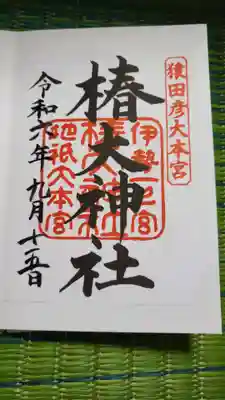 猿田彦大本宮
伊勢一之宮
椿大神社
椿大神社
地祇大本宮
令和六年九月十五日